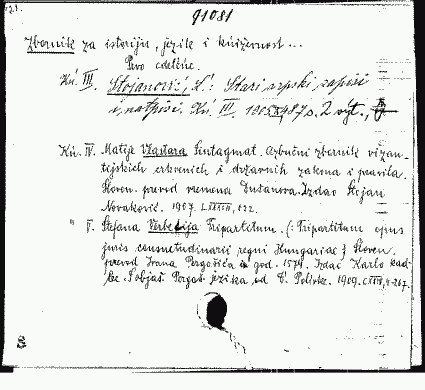 91081
Zbornik za istoriju, jezik i književnost ...
Prvo odelenje.
Knj. III. Stojanović, L.: Stari srpski zapisi
i natpisi. Knj. III. 1905. 487 s. 2 výt.,
Knj. IV. Matije Vlastara Sintagmat. Azbučni zbornik vizan-
tijskih crkvenih i državnih zakona i pravila.
Sloven. prevod vremena Dušanova. Izdao Stojan
Novaković. 1907. LXXXIII, 622.
" V. Stefana Verbecija Tripartitum. (: Tripartitum opus
juris consuetudinarii regni Hungariae) Sloven.
prevod Ivana Pergošića iz god. 1574. Izdao Karlo Kad-
lec. S objaš. Pergoš. jezika od Đ. Polivke. 1909.